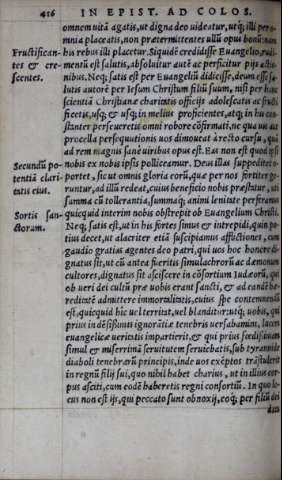 416 IN EPIST. AD COLOS.
omnem uitā agatis, ut digna deo uideatur, utq́; illi per o-
mnia placeatis, non prætermittentes ullū opus bonū: nam
Fructifican-
tes et cre
scentes.
his rebus illi placetur. Siquidē credidisse Euangelio, rudi-
mentū est salutis, absoluitur autē ac perficitur pijs actio-
nibus. Neq; satis est per Euangeliū didicisse, deum esse sa-
lutis autorē per Iesum Christum filiū suum, nisi per hanc
scientiā Christianæ charitatis officijs adolescatis ac fructi
ficetis, usq; & usq; in melius proficientes, atq; in his con-
stanter perseueretis omni robore cōfirmati, ne qua uos aut
procella persequutionis uos dimoueat à recto cursu, quia
ad rem magnis sanè uiribus opus est. Eas non est quod ipsi
Secundū po
tentiā clari
tatis eius.
nobis ex nobis ipsis polliceamur. Deus illas suppeditet o-
portet, sic ut omnis gloria eorū, quæ per nos fortiter ge-
runtur, ad illū redeat, cuius beneficio nobis præstatur, ut
summa cū tollerantia, summaq́; animi lenitate perferamus
Sortis san-
ctorum.
quicquid interim nobis obstrepit ob Euangelium Christi.
Neq; satis est, ut in his fortes simus & intrepidi, quin po-
tius decet, ut alacriter etiā suscipiamus afflictiones, cum
gaudio gratias agentes deo patri, qui uos hoc honore di-
gnatus sit, ut cū antea fueritis simulachrorū ac dæmonum
cultores, dignatus sit asciscere in cōsortium Iudæorū, qui
ob ueri dei cultū præ uobis erant sancti, & ad eandē hæ-
reditatē admittere immortalitatis, cuius spe contemnendū
est, quicquid hîc uel territat, uel blanditur: utq́; uobis, qui
prius in dēsissimis ignorātiæ tenebris uersabamini, lucem
euangelicæ ueritatis impartierit, & qui prius fœdissimam
simul & miserrimā seruitutem seruiebatis, sub tyrannide
diaboli tenebrarū principis, inde uos exēptos trāstulerit
in regnū filij sui, quo nihil habet charius, ut in illius cor-
pus asciti, cum eodē haberetis regni consortiū. In quo lo-
cus non est ijs, qui peccato sunt obnoxij, eoq́; per filiū dei